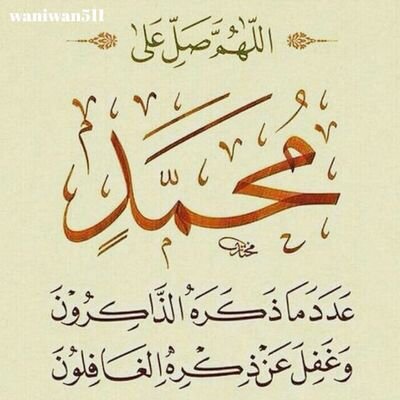 waniwan511
اللَّهُمَّ صَلِّ عَلَى
مُحَمَّدٍ
عَدَدَ مَا ذَكَرَهُ الذَّاكِرُونَ
وَغَفِلَ عَنْ ذِكْرِهِ الغَافِلُونَ